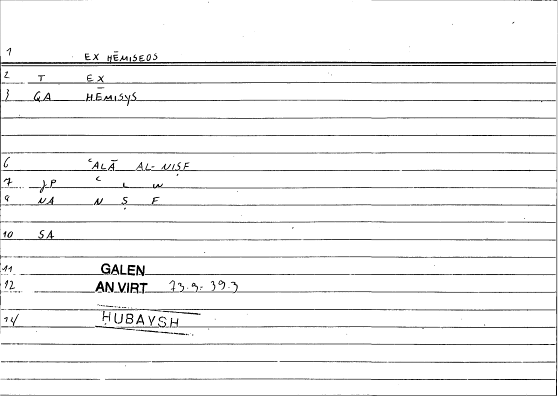 1 EX HĒMISEOS
2 T EX
3 QA HĒMISYS
6 ʿALĀ AL-NIṢF
7 JP ʿ L W
8 NA N Ṣ F
10 SA
11 GALEN
12 AN VIRT 73.9-39.3
14 ḤUBAYSH